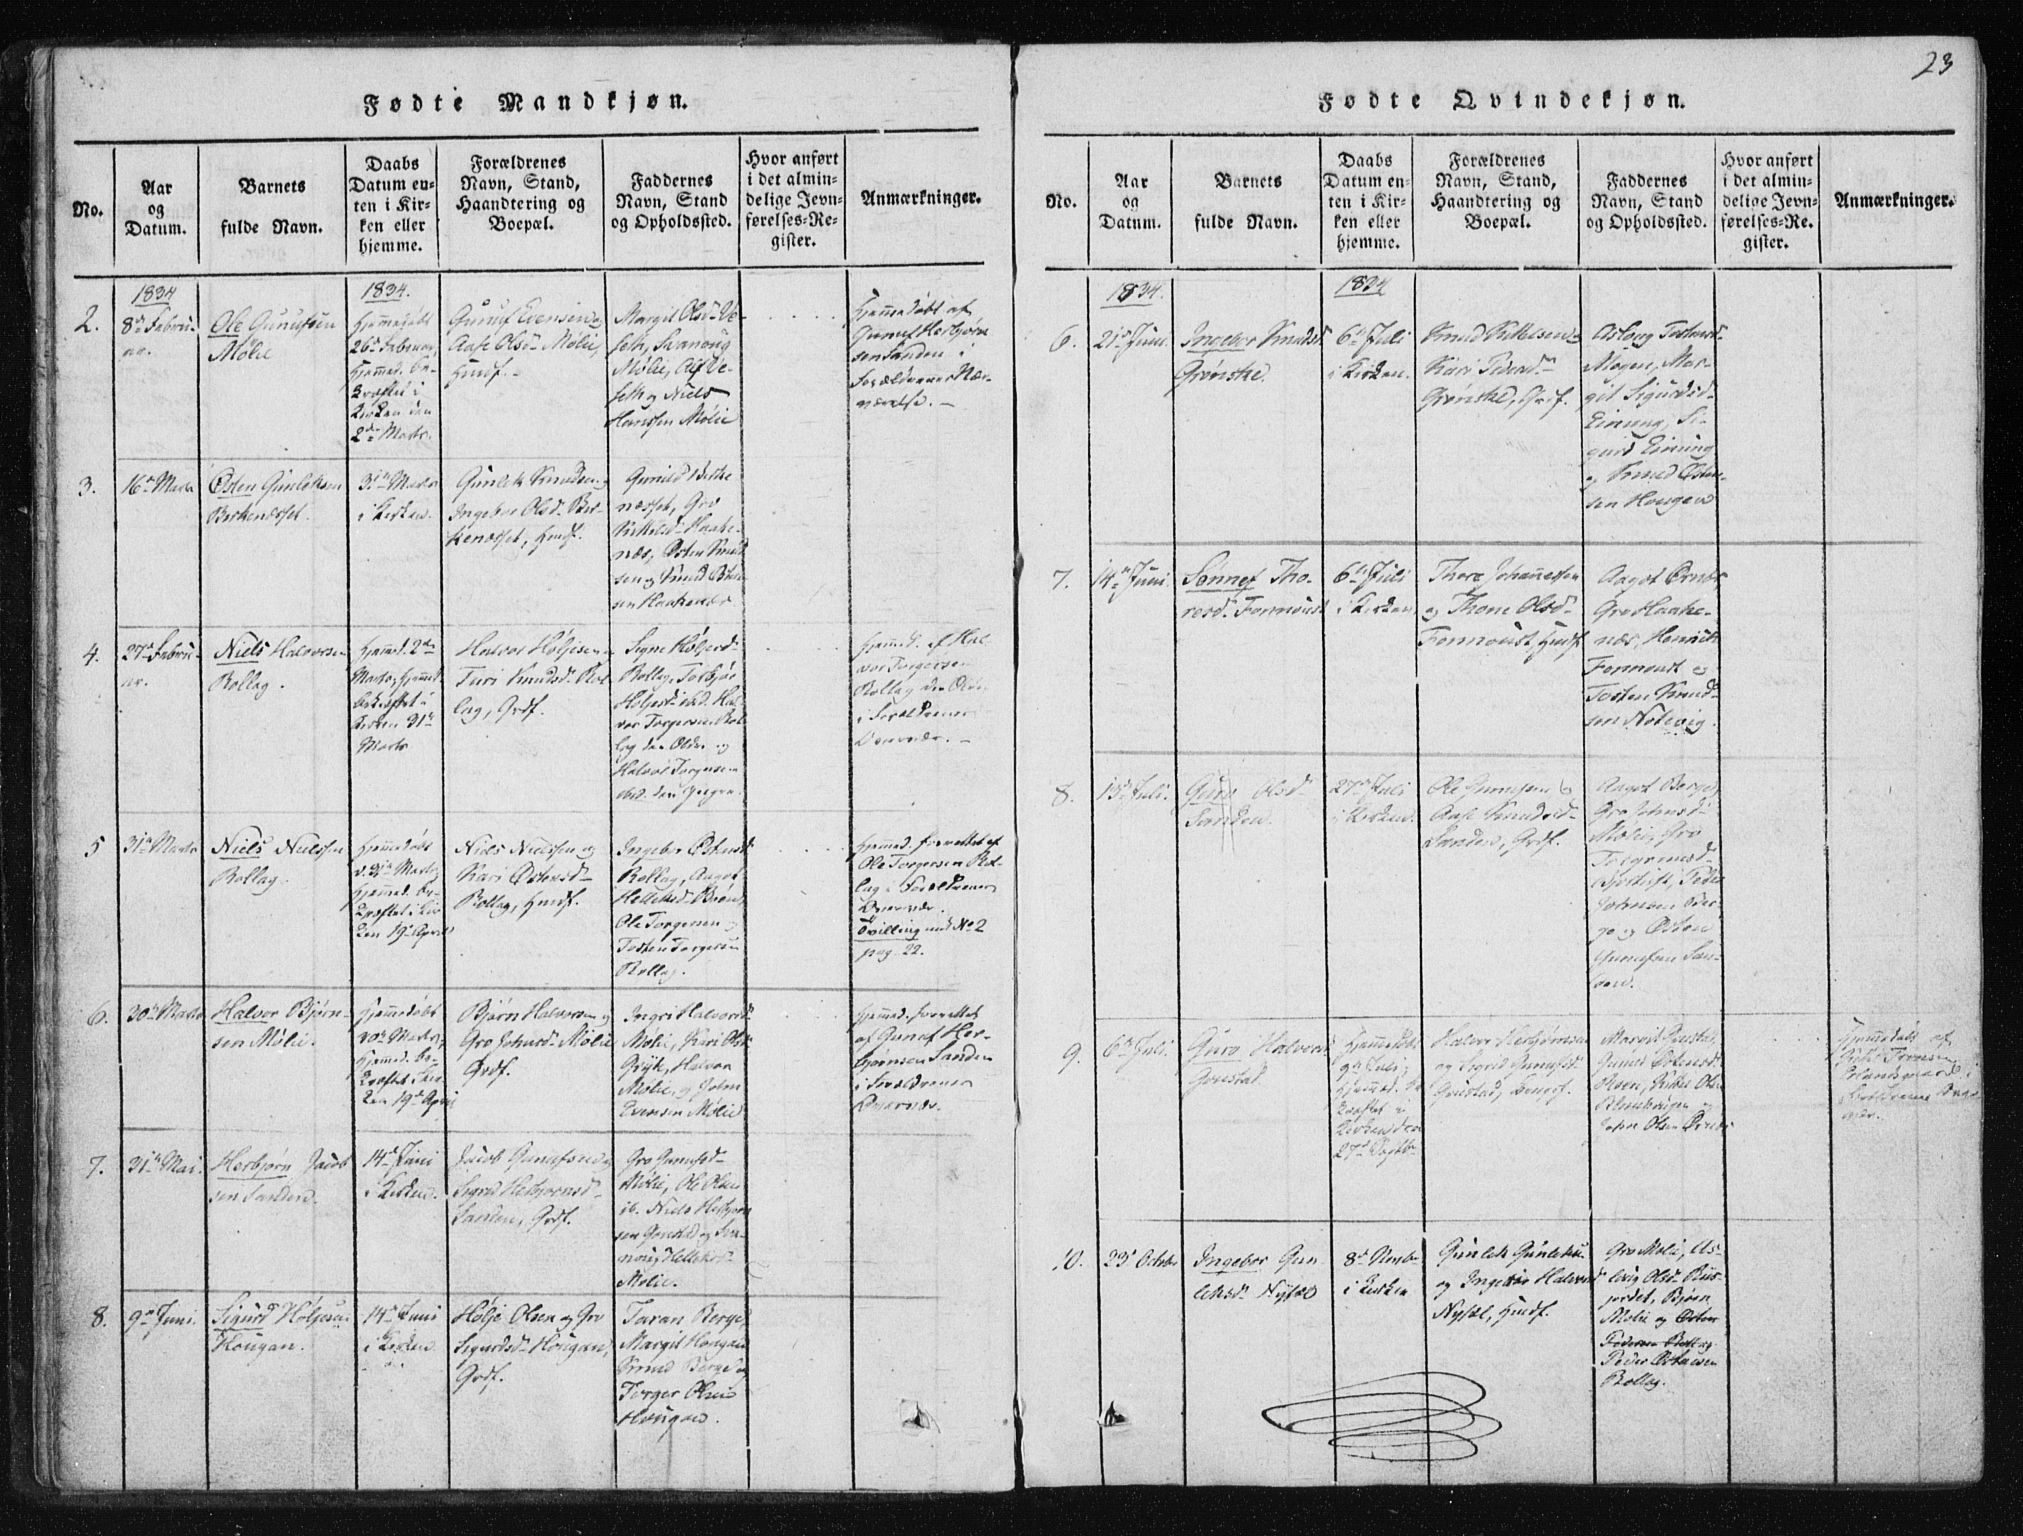 23
Fødte Mandkjøn.
No.
Aar
og
Datum.
Barnets
fulde Navn.
Daabs
Datum en-
ten i Kir-
ken eller
hjemme.
Forældrenes
Navn, Stand,
Haandtering og
Boepæl.
Faddernes
Navn, Stand
og Opholdssted.
Hvor anført
i det almin-
delige Jevn-
førelses-Re-
gister.
Anmærkninger.
2.
1834
8de Febru-
ar.
Ole Gunufsen
Mølie
1834.
Hjemmedøbt
26de Februar,
Hjemmed. be-
kræftet i
Kirken den
2den Marts.
Gunuf Evensen og
Aase Olsd. Mølie,
Husf.
Margit Olsd. Ve-
seth, Svanoug
Mølie, Ve-
seth og Niels
Hansen Mølie
Hjemmedøbt af
Gunuf Herbjørn-
sen Sanden i
Forældrenes Nær-
værelse.
3.
16de Marts
Østen Gunleksen
Birkenæsset.
31te Marts
i Kirken.
Gunlek Knudsen og
Ingebor Olsd. Bir-
kenæsset, Husf.
Gunild Birke
næsset, Gro
Kittilsd. Haake-
næs, Østen Knud
sen og Knud Østen
sen Haakenæs
4.
27de Febru-
ar.
Niels Halvorsen
Rollag.
Hjemmed. 2den
Marts, Hjemmed.
bekræftet i
Kirken 31te
Marts
Halvor Høljesen
Turi Knudsd. Rol
lag, Grdf.
Signe Høljesd.
Rollag, Torbjør
Høljesd. ibid. Hal-
vor Torgersen Rol
lag den Ældre og
Halvor Torgersen
ibid. den Yngre.
Hjemmed. af Hal
vor Torgersen
Rollag den Ældre
i Forældrenes
Overvær.
5
31te Marts
Niels Nielsen
Rollag.
Hjemmedøbt
d. 31te Marts,
Hjemmed. be-
kræftet i Kir
ken 19de April
Niels Nielsen og
Kari Østensd.
Rollag, Husf.
Ingebor Østensd.
Rollag, Aagot
Helleksd.
Ole Torgersen og
Tosten Torgersen
Rollag.
Hjemmed. forrettet af
Ole Torgersen Rol-
lag i Forældrenes
Overvær.
Tvilling med No 2
pag. 22.
6.
30te Marts
Halvor Bjørn-
sen Mølie.
Hjemmedøbt
30te Marts,
Hjemmed. be-
kræftet i Kir
ken 19de April
Bjørn Halvorsen og
Gro Johnsd. Mølie
Grdf.
Ingri Halvorsd.
Mølie, Kari Olsd.
Halvor
Mølie, og John
Evensen Mølie
Hjemmed. forrettet
af Gunuf Her-
bjørnsen Sanden
i Forældrenes
Overvær.
7.
31te Mai.
Herbjørn Jacob
sen Sanden.
14de Juni
i Kirken.
Jacob Gunufsen og
Sigrid Herbjørnsd.
Sanden, Grdf.
Gro Gunufsd.
Mølie, Ole Olsen
ib. Niels Herbjørn
sen Goustad og Sva-
noug Helleksd.
Mølie.
8.
9de Juni.
Sigurd Høljesen
Hougan.
14de Juni
i Kirken
Hølje Olsen og Gro
Sigurdsd. Hougan,
Grdf.
Taran Berge,
Margit Hougan
Knud Berge og
Torger Olsen
Hougan.
Fødte Qvindekjøn.
No.
Aar
og
Datum.
Barnets
fulde Navn.
Daabs
Datum en-
ten i Kir-
ken eller
hjemme.
Forældrenes
Navn, Stand,
Haandtering og
Boepæl.
Faddernes
Navn, Stand
og Opholdssted.
Hvor anført
i det almin-
delige Jevn-
førelses-Re-
gister.
Anmærkninger.
6.
1834.
21de Juni.
Ingebor Knudsd.
Grønskei.
1834
6te Juli
i Kirken.
Knud Kittelsen og
Kari Pedersd.
Grønskei, Grdf.
Aslaug Tostensd.
Mogen, Mar-
git Sigurdsd.
Einung, Si-
gurd Einung
og Knud Østen-
sen Hougen
7.
14de Juni
Sønnef Tho-
resd. Fornoust
6te Juli
i Kirken
Thore Johannesen
og Thone Olsd.
Fornoust, Husf.
Aagot Ørnes
Gro Haake-
næs, Henrik
Fornoust og
Tosten Knud-
sen Notevig.
8.
13de Juli.
Guro Olsd.
Sanden.
27de Juli
i Kirken.
Ole Gunufsen og
Aase Knudsd.
Sanden, Grdf.
Aagot Berge,
Gro Johnsd.
Mølie, Gro
Peder
Johnsen Ber-
ge og Østen
Gunufsen San-
den.
9.
6te Juli.
Guro Halvorsd.
Goustad.
Hjemmedøbt
9de Juli,
Hjemmed. be
kræftet i
Kirken den
27de Septbr
Halvor Herbjørnsen
og Sigrid Gunufsd.
Goustad,
Margit Goustad,
Gunild Østensd.
Kittel Ols.
og
John Olsen Ørnes
Hjemmedøbt af
10.
23de Octobr
Ingebor Gun
leksd. Nysæl
8de Novbr
i Kirken
Gunlek Gunleksen
og Ingebor Halvorsd
Nysæl, Husf.
Gro Mølie, As-
laug Olsd. Rus-
jordet, Bjørn
Mølie og Østen
Pedersen Rollag
Peder Østensen
Rollag.